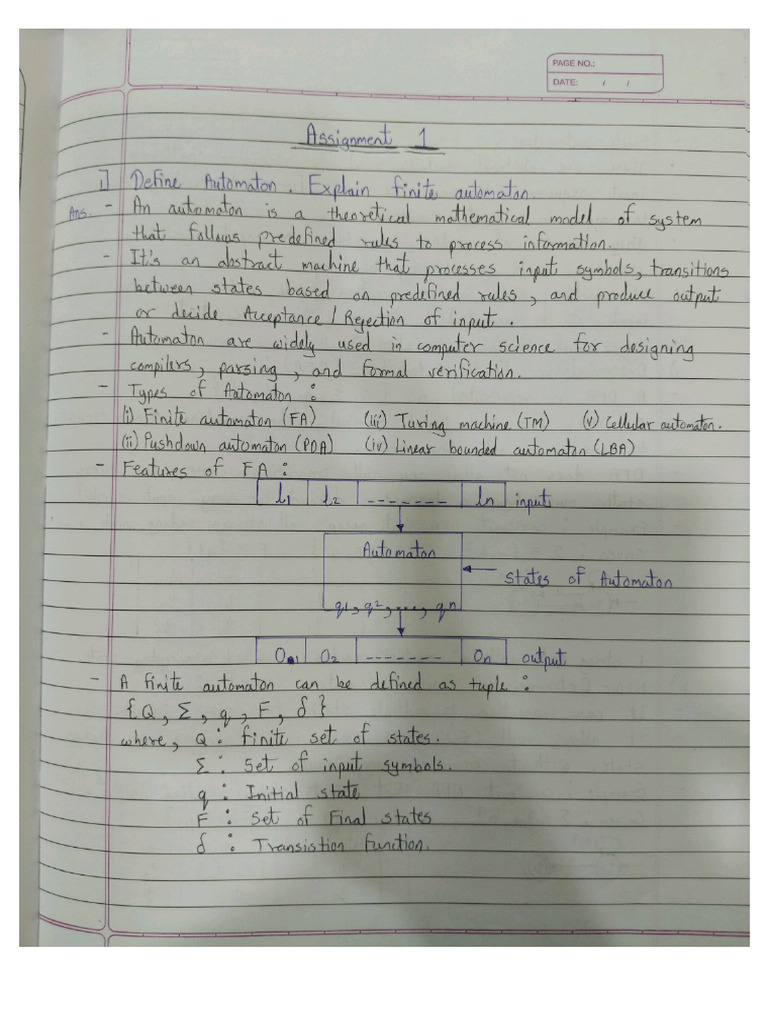 PAGE NO.:
DATE: / /
Assignment 1
1] Define Automaton. Explain finite automaton.
Ans. - An automaton is a theoretical mathematical model of system
that follows predefined rules to process information.
- It's an abstract machine that processes input symbols, transitions
between states based on predefined rules, and produce output
or decide Acceptance / Rejection of input.
- Automaton are widely used in computer science for designing
compilers, parsing, and formal verification.
- Types of Automaton :
(i) Finite automaton (FA) (iii) Turing machine (TM) (v) Cellular automaton.
(ii) Pushdown automaton (PDA) (iv) Linear bounded automaton (LBA)
- Features of FA :
I1 I2 ------- In input
Automaton
States of Automaton
q1, q2, ..., qn
O1 O2 ------- On output
- A finite automaton can be defined as tuple :
{Q, Σ, q, F, δ}
where, Q : Finite set of states.
Σ : Set of input symbols.
q : Initial state
F : Set of Final states
δ : Transistion Function.